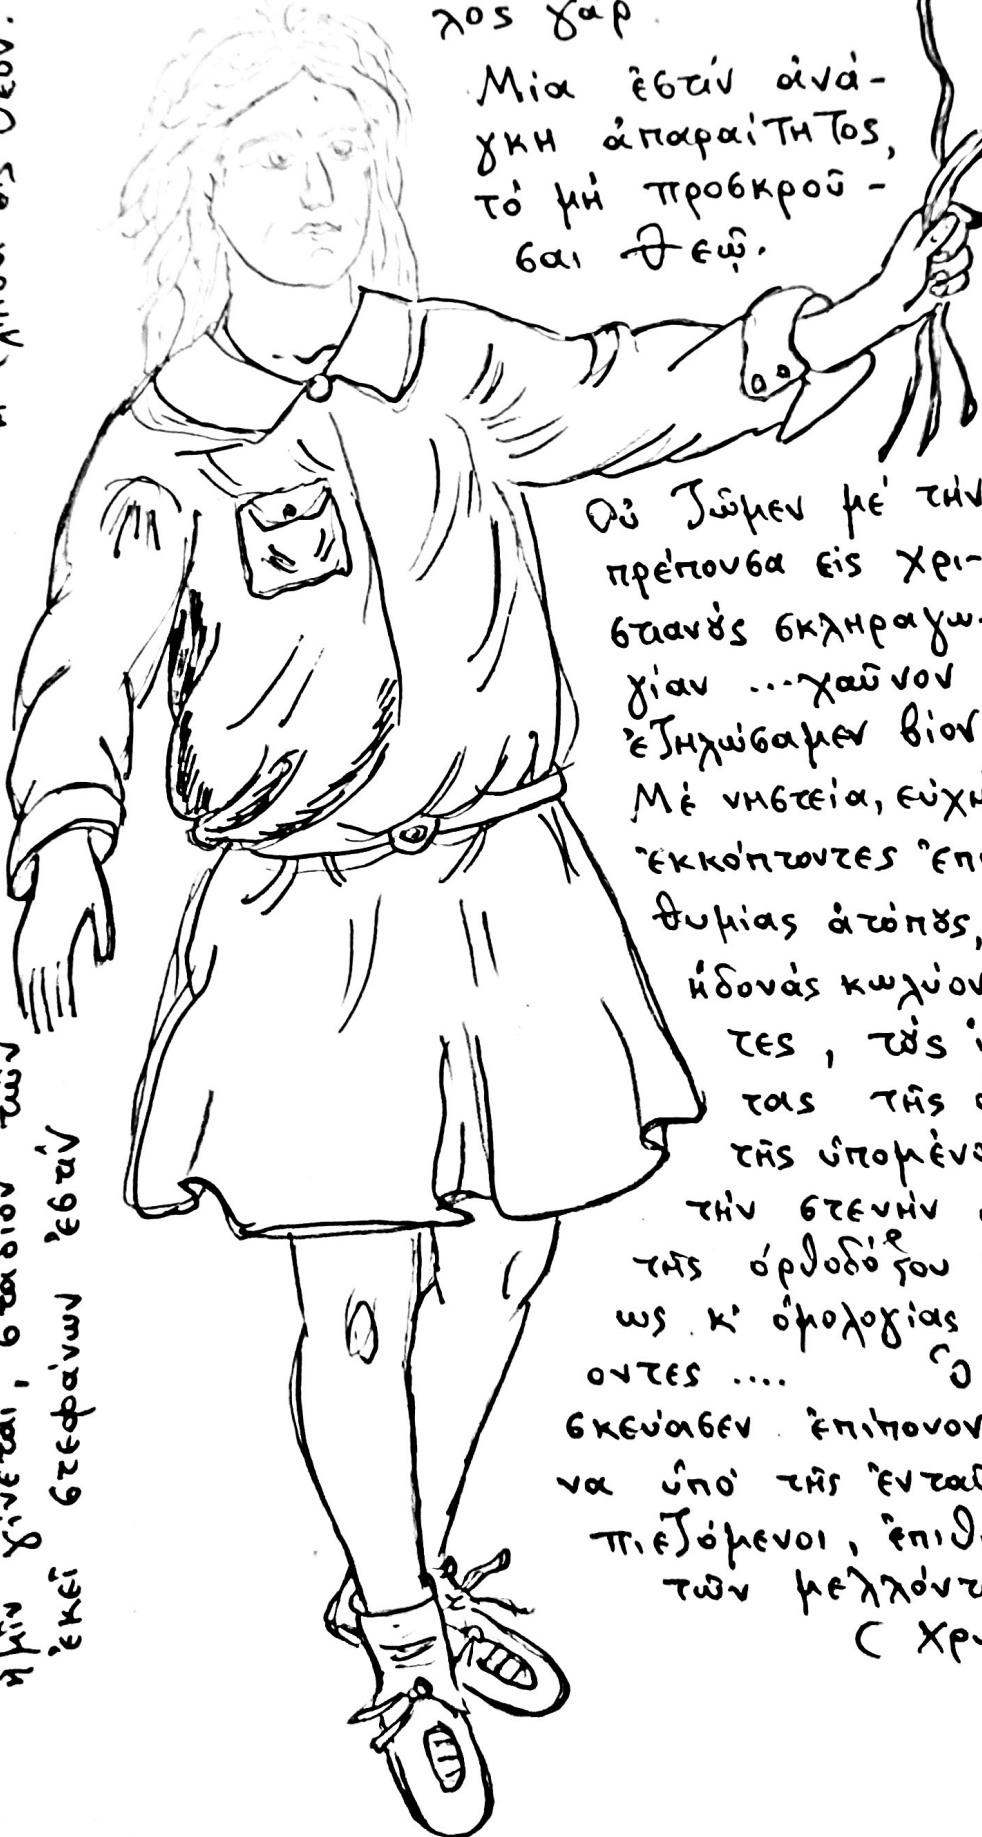 λος γάρ
Μία ἐστίν ἀνά-
γκη ἀπαραίτητος,
τό μή προσκροῦ-
σαι Θεῷ.
Οὐ ζῶμεν μέ τήν
πρέπουσα εἰς χρι-
στιανȣ́ς σκληραγω-
γίαν ...χαῦνον
ἐζηλώσαμεν βίον
Μέ νηστεία, εὐχή
ἐκκόπτοντες ἐπι
θυμίας ἀτόπȣς,
ἡδονάς κωλύον
τες, τȣ́ς
τας τῆς
τῆς ὑπομένο
τήν στενήν
τῆς ὀρθοδόξου
ως κ' ὁμολογίας
οντες .... Ὁ
σκεύασεν ἐπίπονον
να ὑπό τῆς ἐνταῦ
πιεζόμενοι, ἐπιθ
τῶν μελλόντ
( Χρ
ἡμῖν γίνεται, στάδιον τῶν
ἐκεῖ στεφάνων ἐστίν
Θεόν.